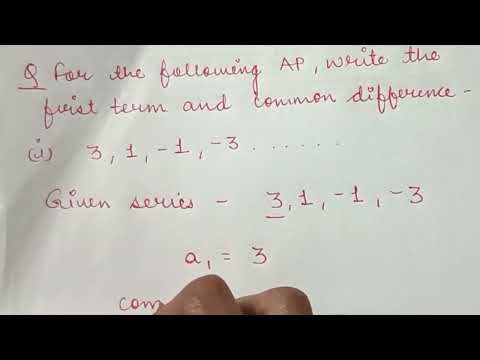 Q For the following AP, write the
first term and common difference -
(i) 3, 1, -1, -3 ......
Given series - 3, 1, -1, -3
a₁ = 3
com